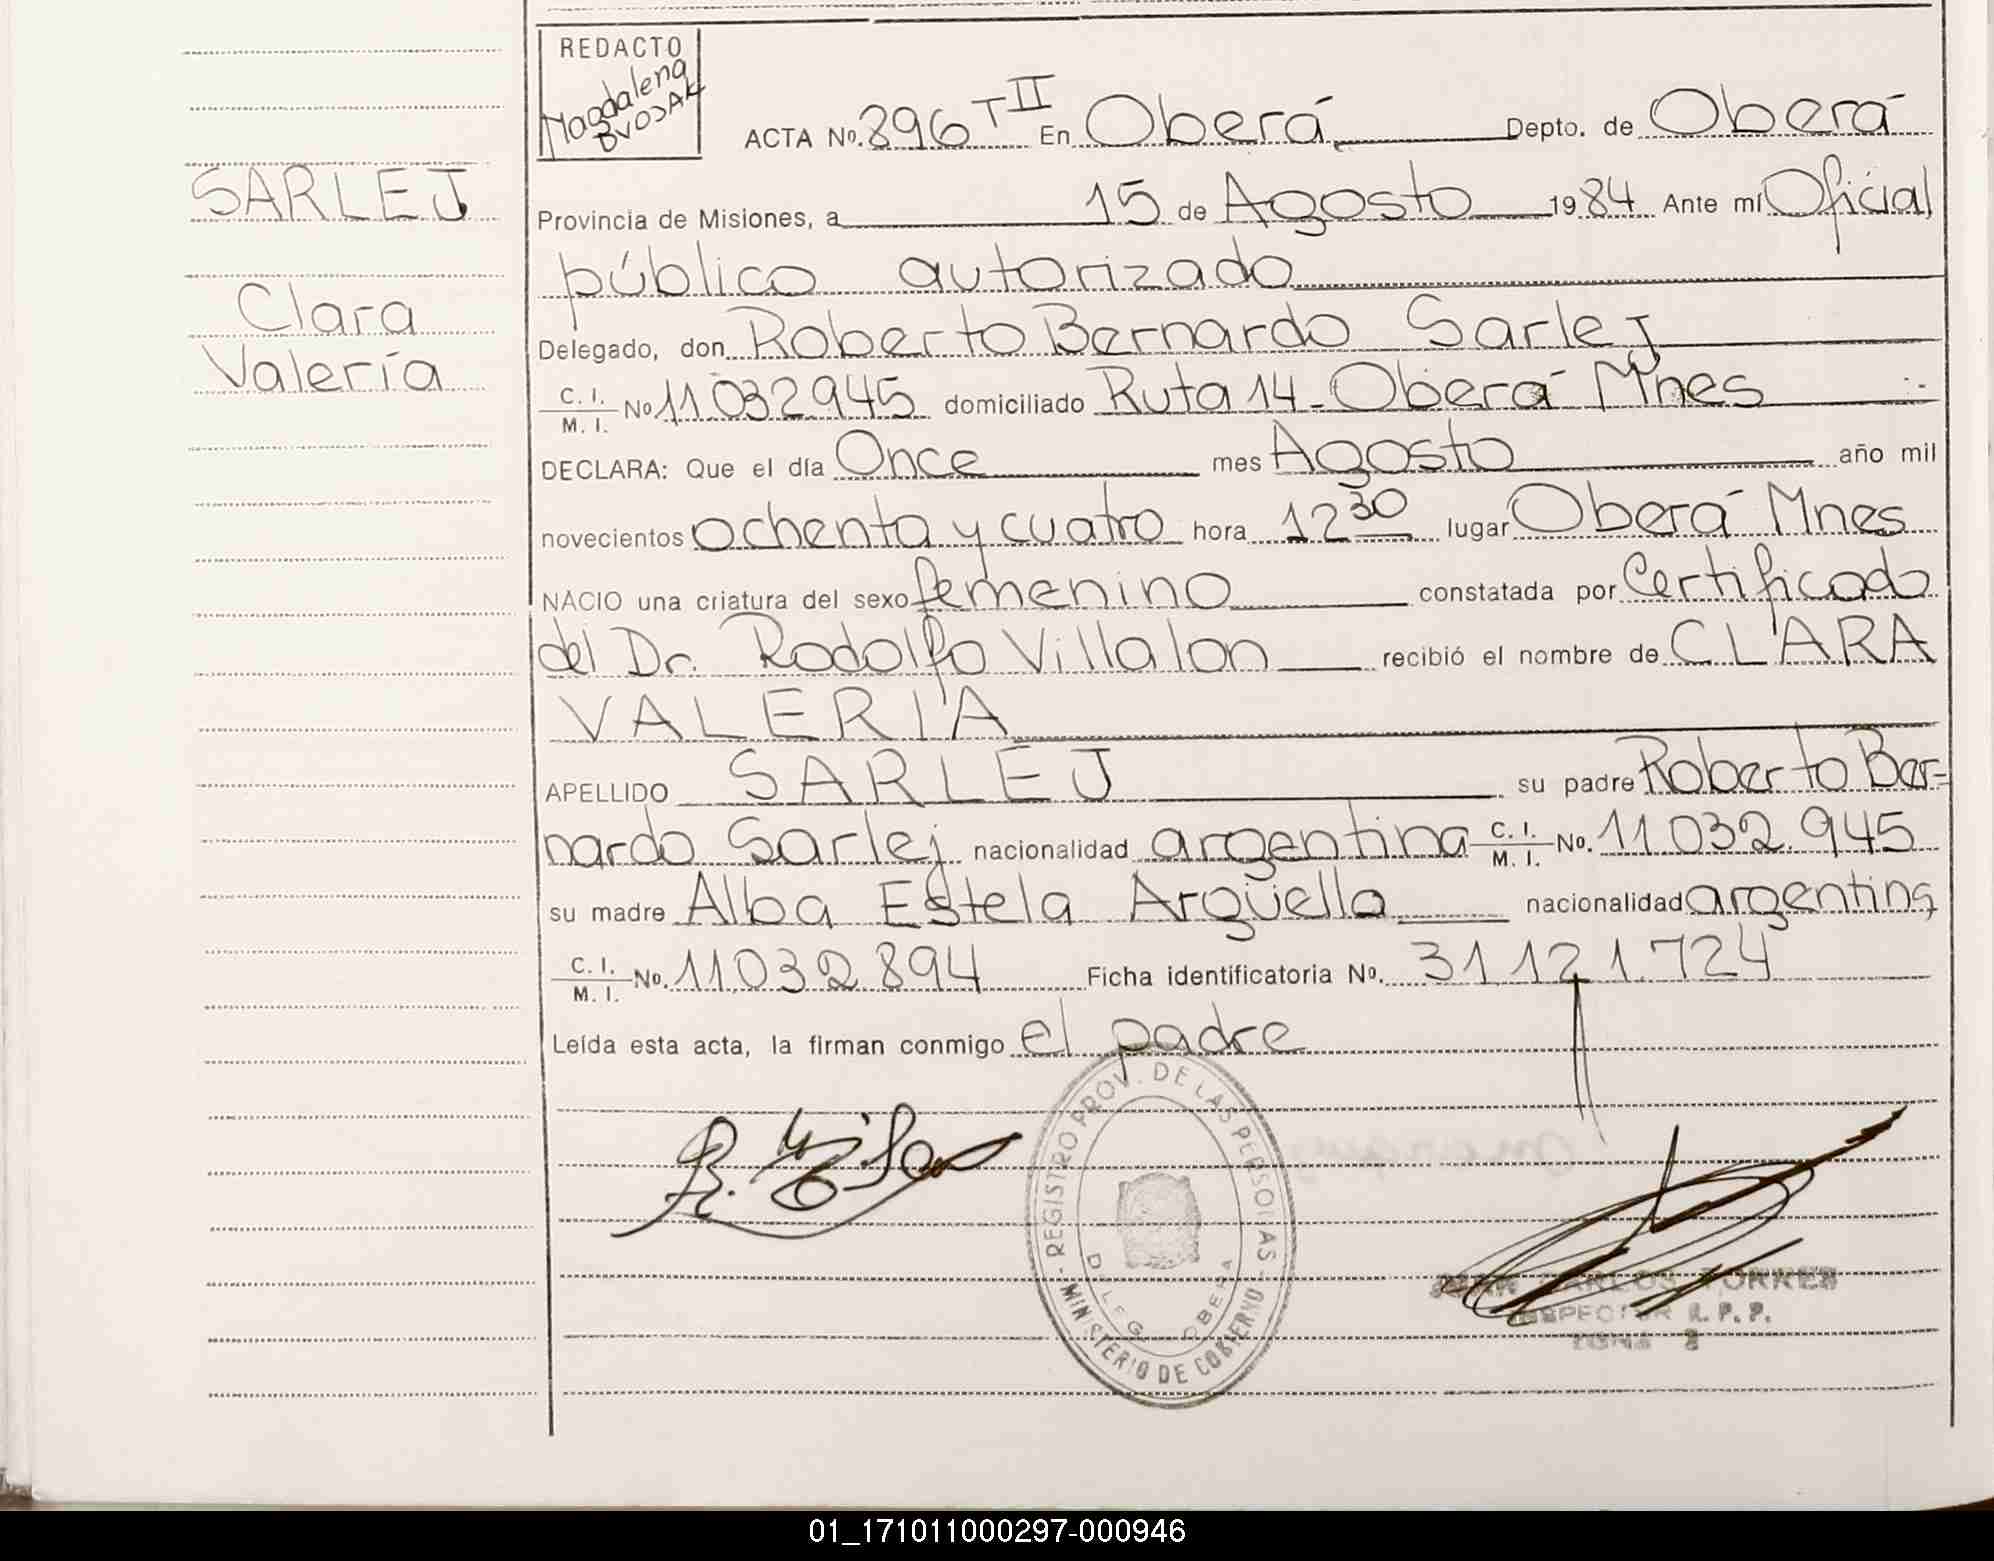 REDACTO
Magdalena
BVOSAK
ACTA Nº. 896 T II En Oberá Depto. de Oberá
SARLEJ
Provincia de Misiones, a 15 de Agosto 1984 Ante mí Oficial
público autorizado
Clara
Delegado, don Roberto Bernardo Sarlej
Valería
C. I. / M. I. Nº 11.032.945 domiciliado Ruta 14 - Oberá Mnes
DECLARA: Que el día Once mes Agosto año mil
novecientos ochenta y cuatro hora 12 30 lugar Oberá Mnes
NACIO una criatura del sexo femenino constatada por Certificado
del Dr. Rodolfo Villalon recibió el nombre de CLARA
VALERIA
APELLIDO SARLEJ su padre Roberto Ber-
nardo Sarlej nacionalidad argentina C. I. / M. I. Nº. 11.032.945
su madre Alba Estela Argüello nacionalidad argentina
C. I. / M. I. Nº. 11.032.894 Ficha identificatoria Nº. 31.121.724
Leída esta acta, la firman conmigo el padre
REGISTRO PROV. DE LAS PERSONAS - MINISTERIO DE GOBIERNO -
DELEG. OBERA
JUAN CARLOS TORRES
INSPECTOR R. P. P.
ZONA 2
01_171011000297-000946